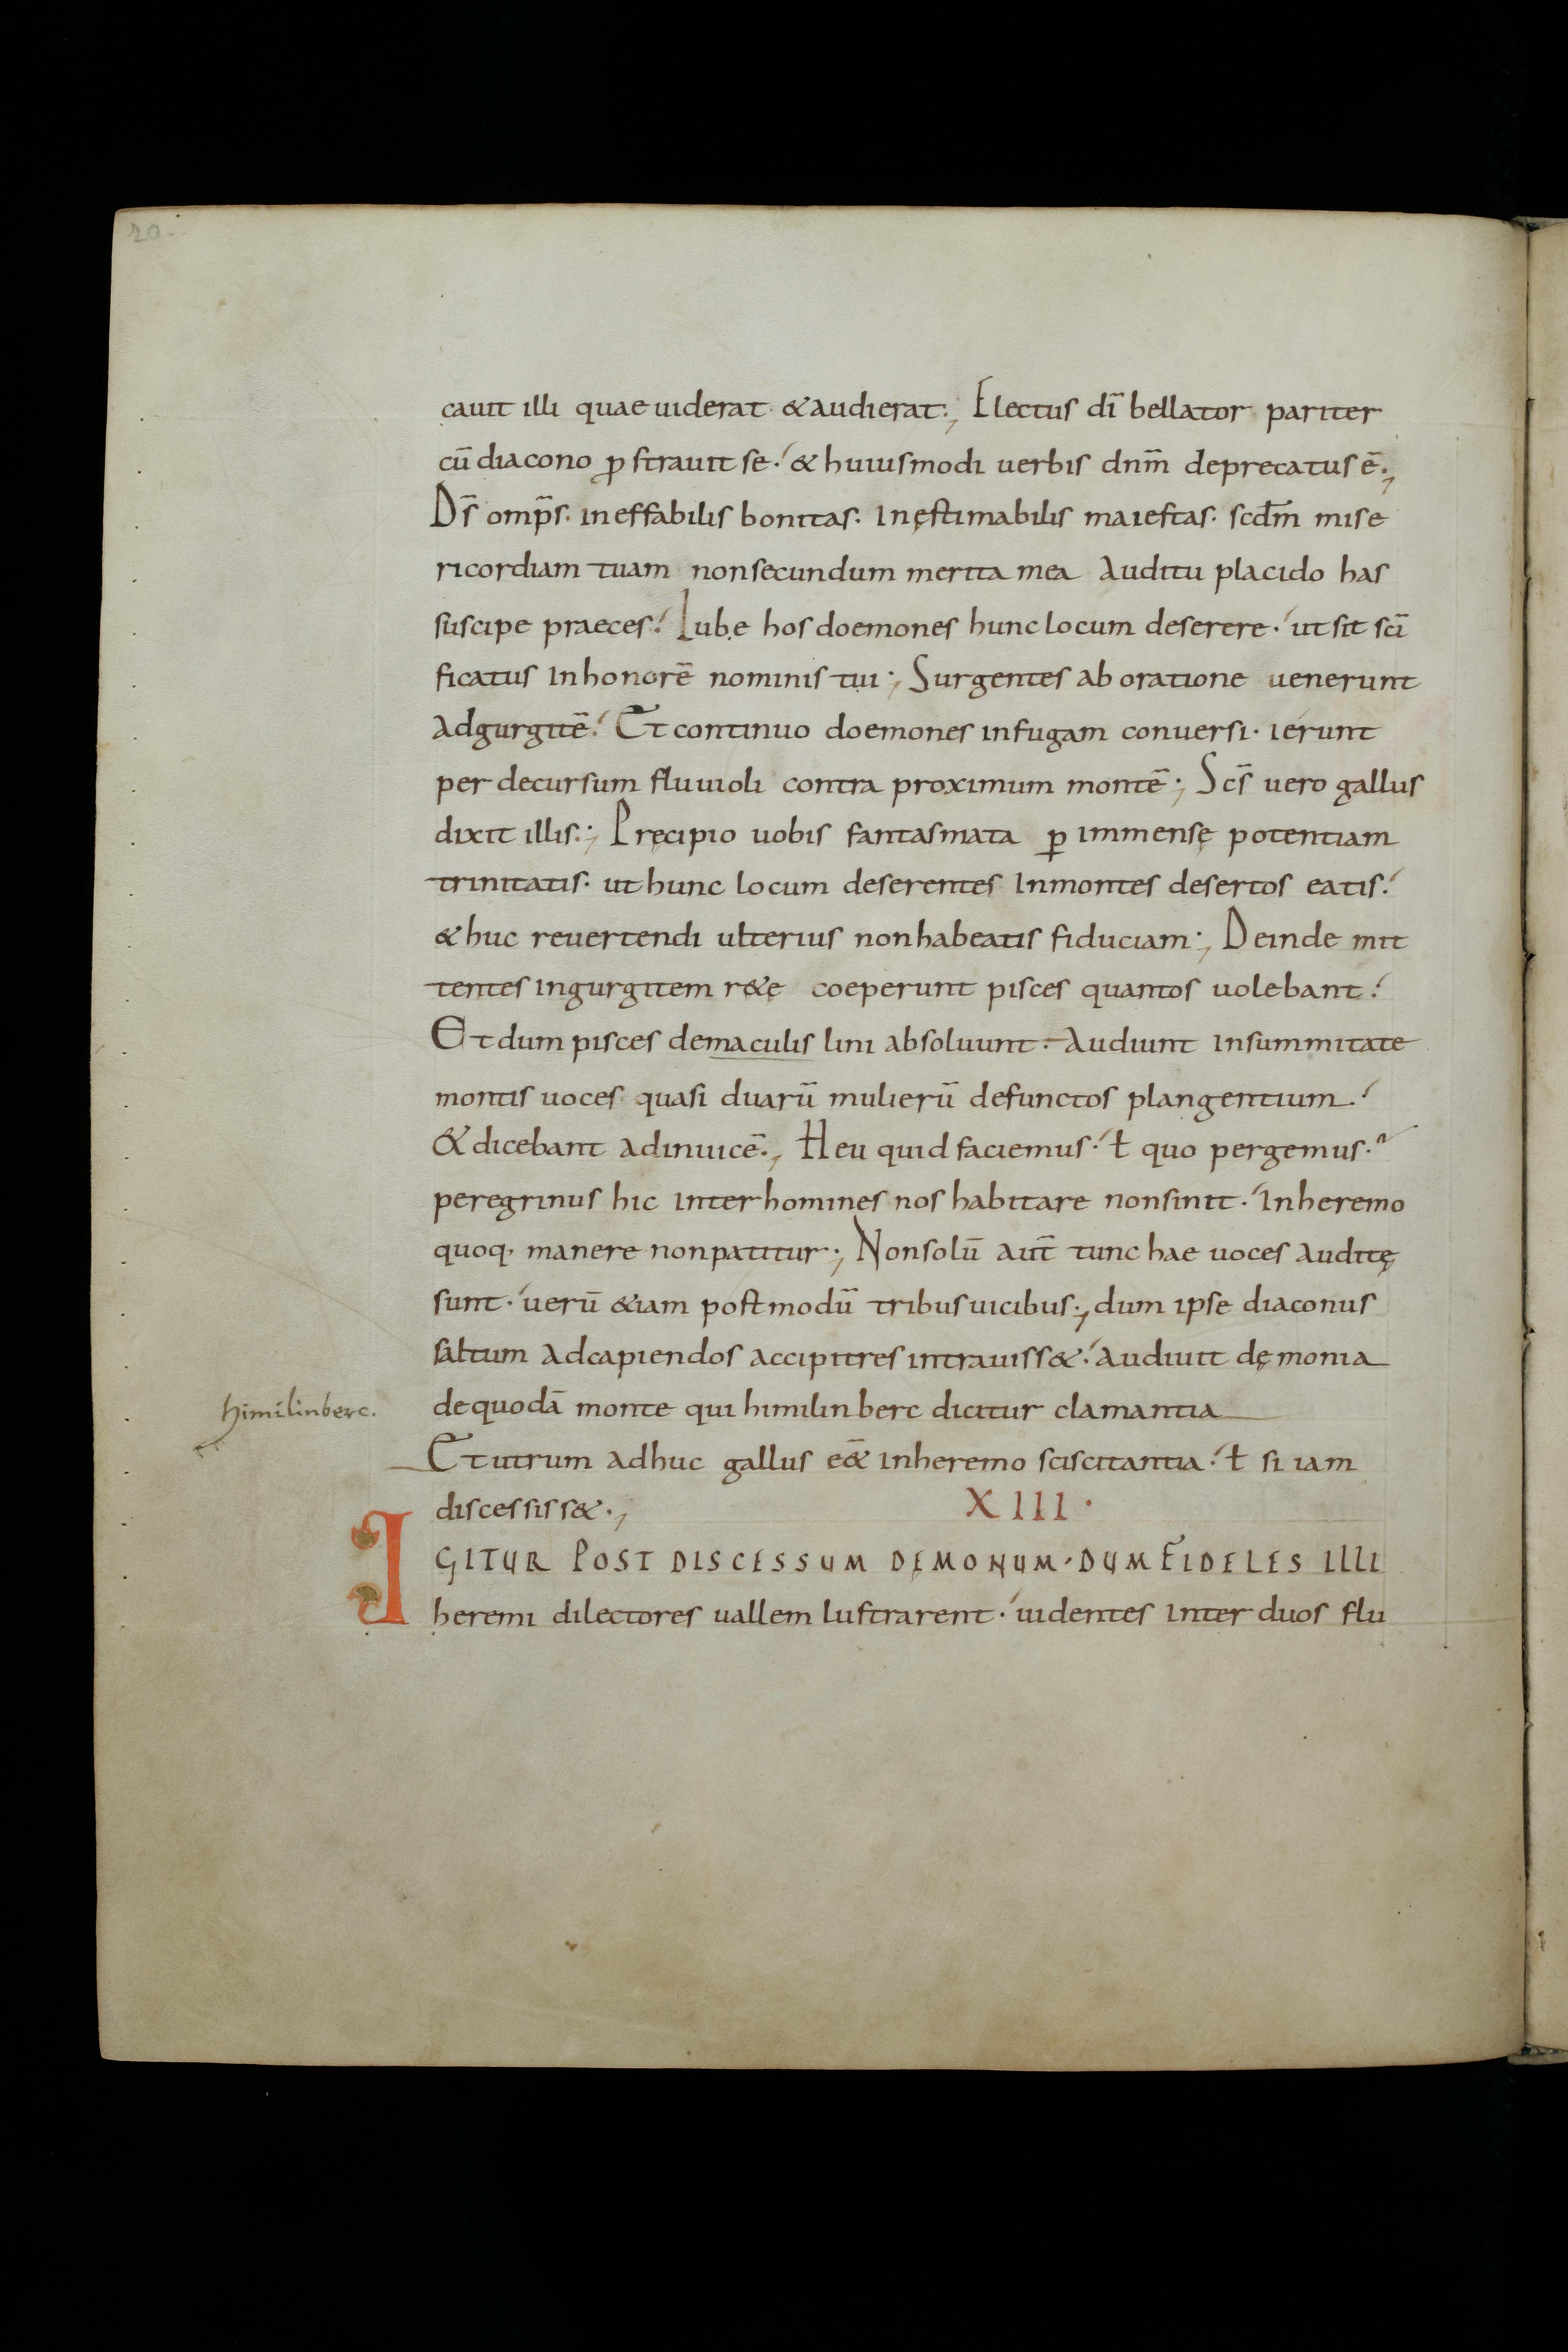 20
cauit illi quae uiderat &audierat·, Electus dī bellator pariter
cū diacono ꝓstrauit se· & huiusmodi uerbis dnm̄ deprecatus ē·,
Ds̄ omp̄s· ineffabilis bonitas· inęstimabilis maiestas· scdm̄ mise
ricordiam tuam non secundum merita mea auditu placido has
suscipe praeces· Iube hos doemones hunc locum deserere· ut sit scī
ficatus in honorē nominis tui·, Surgentes ab oratione uenerunt
ad gurgitē· Et continuo doemones in fugam conuersi· ierunt
per decursum fluuioli contra proximum montē·, Scs̄ uero gallus
dixit illis·, Pręcipio uobis fantasmata ꝑ immensę potentiam
trinitatis· ut hunc locum deserentes in montes desertos eatis·
& huc reuertendi ulterius non habeatis fiduciam·, Deinde mit
tentes in gurgitem r&ę coeperunt pisces quantos uolebant·
Et dum pisces de maculis lini absoluunt· Audiunt in summitate
montis uoces quasi duarū mulierū defunctos plangentium·
& dicebant ad inuicē·, Heu quid faciemus· ł quo pergemus·
peregrinus hic inter homines nos habitare non sinit· in heremo
quoq· manere non patitur·, Non solū aut̄ tunc hae uoces auditę
sunt· uerū &iam postmodū tribus uicibus·, dum ipse diaconus
saltum ad capiendos accipitres intrauiss&· audiuit dęmonia
himilinberc.
de quodā monte qui himilinberc dicitur clamantia
Et utrum adhuc gallus eē& in heremo sciscitantia· ł si iam
discessiss&·,
XIII·
IGITUR POST DISCESSUM DĘMONUM· DUM FIDELES ILLI
heremi dilectores uallem lustrarent· uidentes inter duos flu